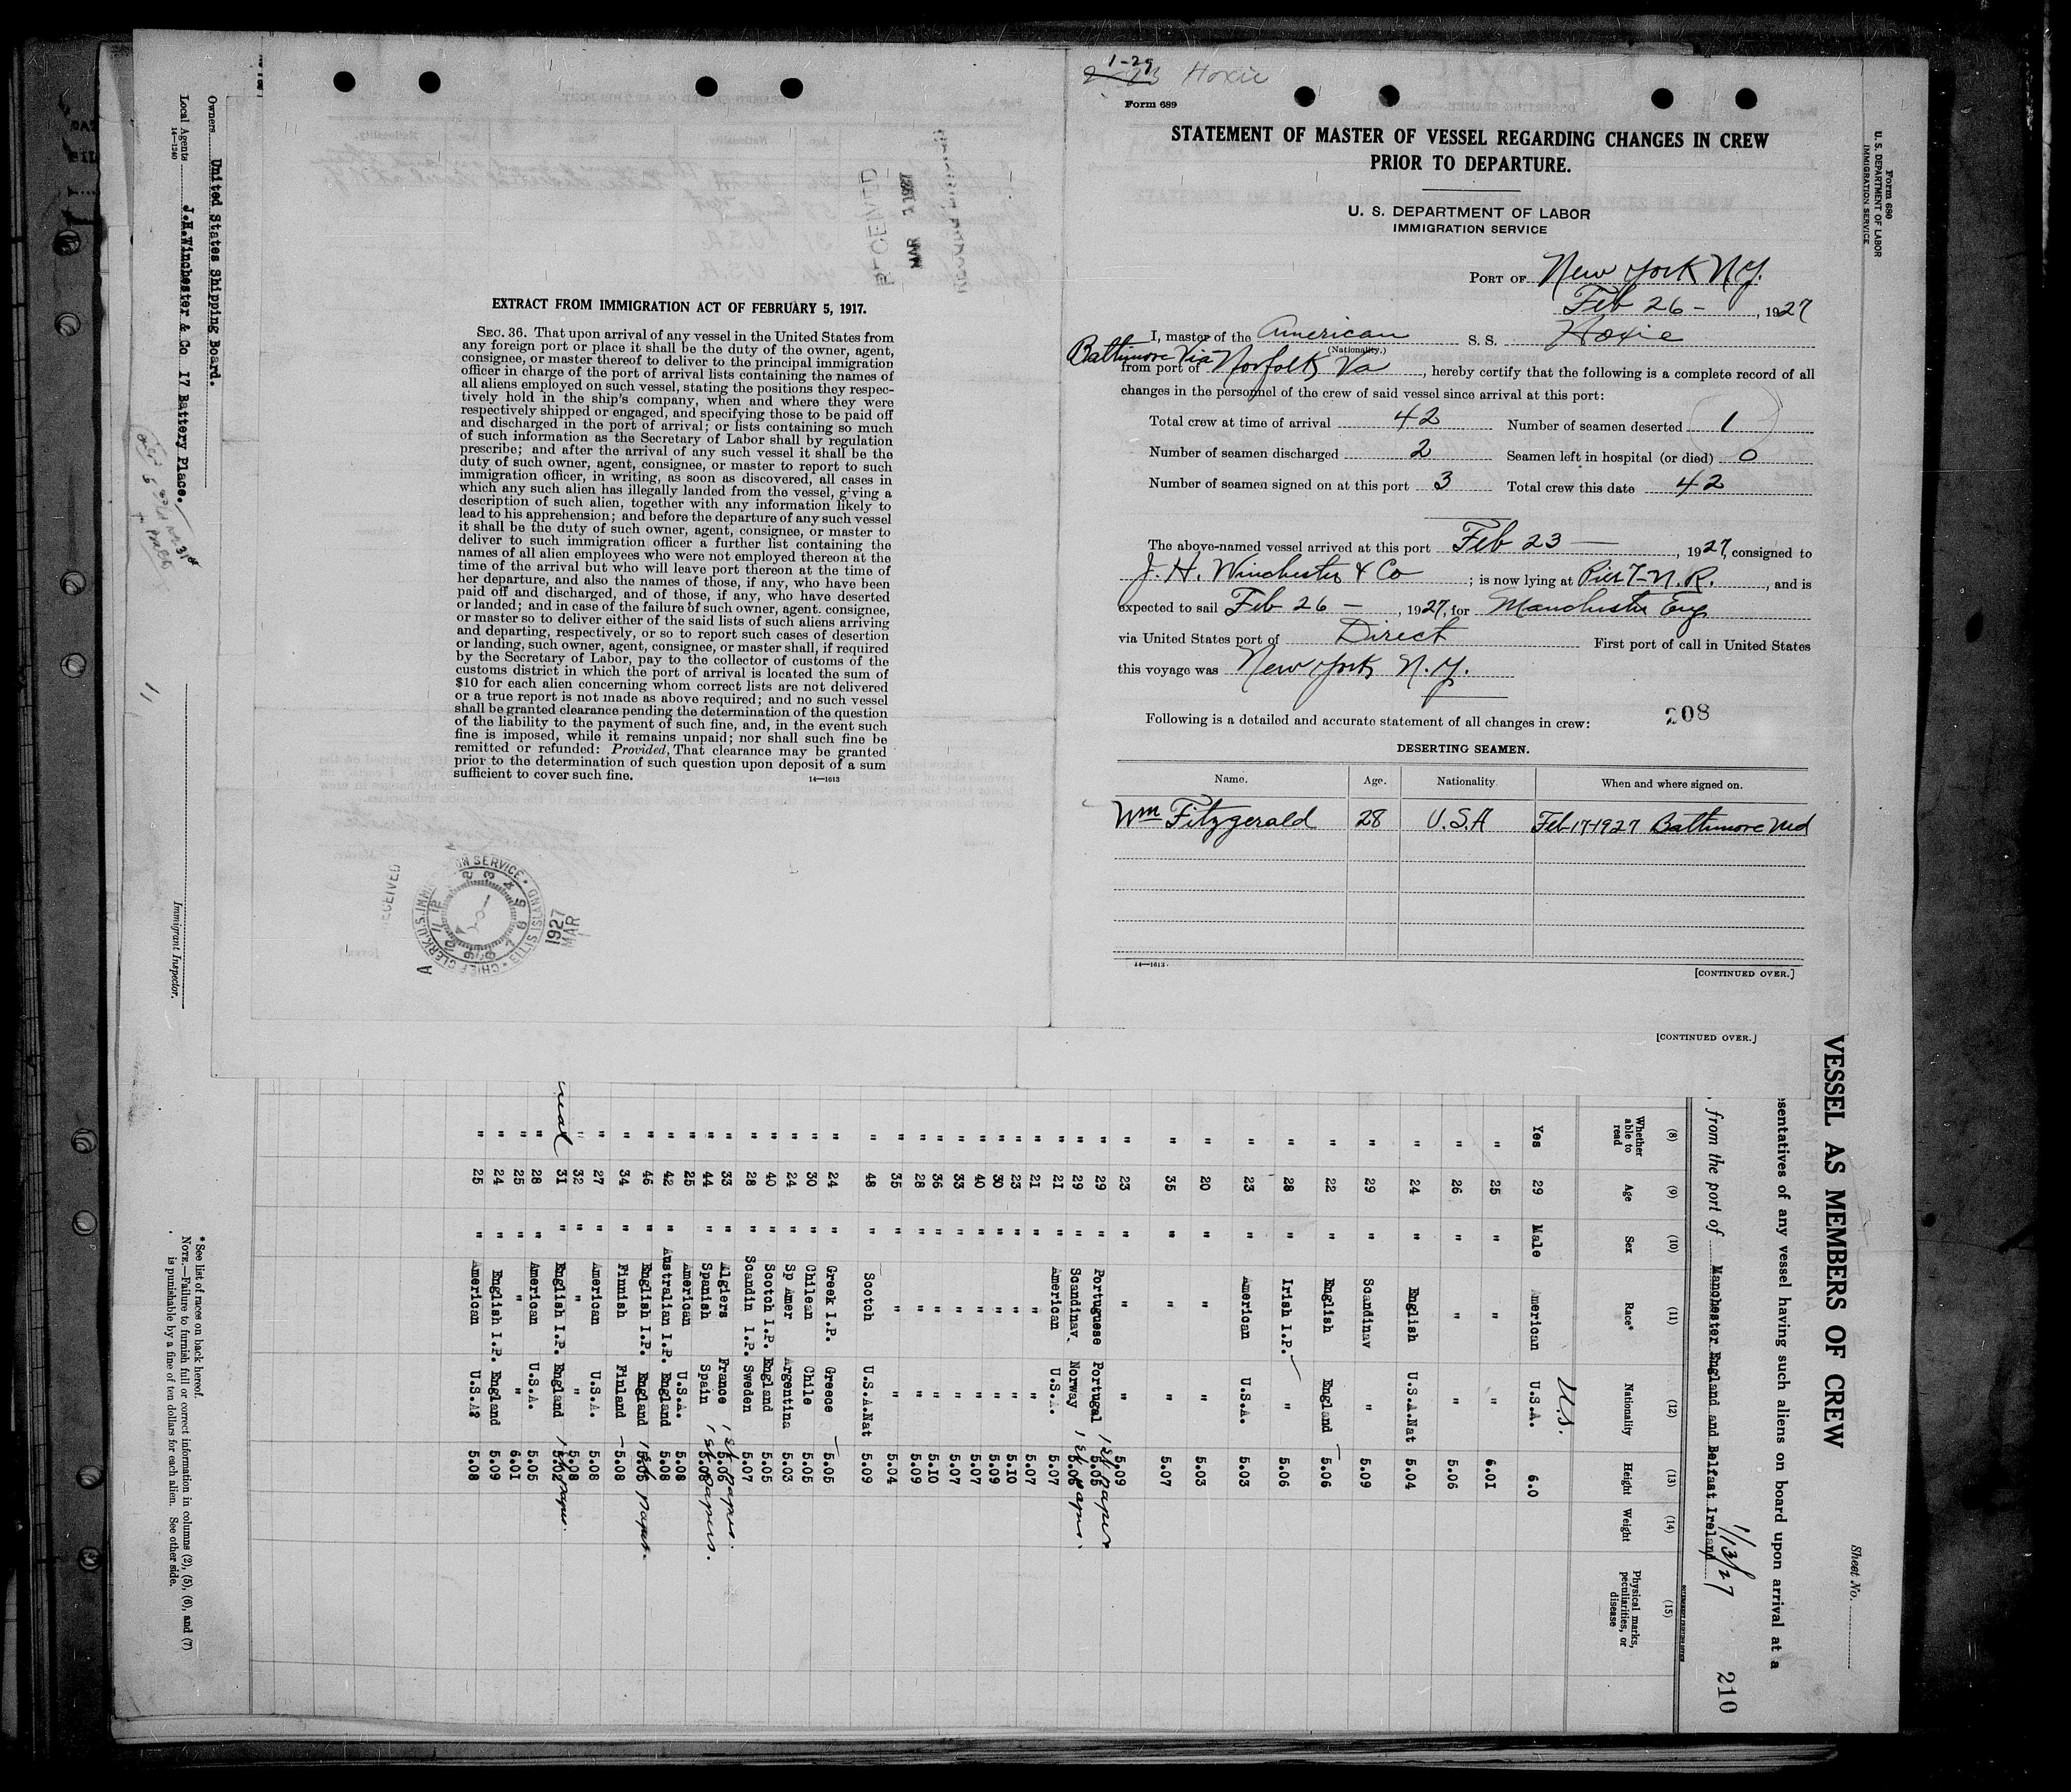 1-29
2-23 Hoxie
Form 689
STATEMENT OF MASTER OF VESSEL REGARDING CHANGES IN CREW
PRIOR TO DEPARTURE.
U. S. DEPARTMENT OF LABOR
IMMIGRATION SERVICE
PORT OF New York N.Y.
Feb 26 - , 1927
I, master of the American S. S. Hoxie
(Nationality.)
Baltimore Via
from port of Norfolk Va , hereby certify that the following is a complete record of all
changes in the personnel of the crew of said vessel since arrival at this port:
Total crew at time of arrival 42 Number of seamen deserted 1
Number of seamen discharged 2 Seamen left in hospital (or died) 0
Number of seamen signed on at this port 3 Total crew this date 42
The above-named vessel arrived at this port Feb 23 — , 1927, consigned to
J. H. Winchester & Co ; is now lying at Pier 7-N.R. , and is
expected to sail Feb 26 - , 1927, for Manchester Eng
via United States port of Direct First port of call in United States
this voyage was New York N.Y.
Following is a detailed and accurate statement of all changes in crew: 208
DESERTING SEAMEN.
Name. Age. Nationality When and where signed on.
Wm Fitzgerald 28 U.S.A Feb-17-1927 Baltimore Md
14—1613
[CONTINUED OVER.]
[CONTINUED OVER.]
EXTRACT FROM IMMIGRATION ACT OF FEBRUARY 5, 1917.
SEC. 36. That upon arrival of any vessel in the United States from
any foreign port or place it shall be the duty of the owner, agent,
consignee, or master thereof to deliver to the principal immigration
officer in charge of the port of arrival lists containing the names of
all aliens employed on such vessel, stating the positions they respec-
tively hold in the ship's company, when and where they were
respectively shipped or engaged, and specifying those to be paid off
and discharged in the port of arrival; or lists containing so much
of such information as the Secretary of Labor shall by regulation
prescribe; and after the arrival of any such vessel it shall be the
duty of such owner, agent, consignee, or master to report to such
immigration officer, in writing, as soon as discovered, all cases in
which any such alien has illegally landed from the vessel, giving a
description of such alien, together with any information likely to
lead to his apprehension; and before the departure of any such vessel
it shall be the duty of such owner, agent, consignee, or master to
deliver to such immigration officer a further list containing the
names of all alien employees who were not employed thereon at the
time of the arrival but who will leave port thereon at the time of
her departure, and also the names of those, if any, who have been
paid off and discharged, and of those, if any, who have deserted
or landed; and in case of the failure of such owner, agent. consignee,
or master so to deliver either of the said lists of such aliens arriving
and departing, respectively, or so to report such cases of desertion
or landing, such owner, agent, consignee, or master shall, if required
by the Secretary of Labor, pay to the collector of customs of the
customs district in which the port of arrival is located the sum of
$10 for each alien concerning whom correct lists are not delivered
or a true report is not made as above required; and no such vessel
shall be granted clearance pending the determination of the question
of the liability to the payment of such fine, and, in the event such
fine is imposed, while it remains unpaid; nor shall such fine be
remitted or refunded: Provided, That clearance may be granted
prior to the determination of such question upon deposit of a sum
sufficient to cover such fine.
14—1613
RECEIVED
MAR 1927
CHIEF CLERK, U.S. IMMIGRATION SERVICE • ELLIS ISLAND
1927
MAR
Form 689
U. S. DEPARTMENT OF LABOR
IMMIGRATION SERVICE
VESSEL AS MEMBERS OF CREW
Sheet No.
esentatives of any vessel having such aliens on board upon arrival at a
, from the port of Manchester England and Belfast Ireland 1/13/27 210
(8) (9) (10) (11) (12) (13) (14) (15)
Whether able to read Age Sex Race* Nationality Height Weight Physical marks, peculiarities, or disease
U.S.
Yes 29 Male American U.S.A. 6.0
" 25 " " " 6.01
" 26 " " " 5.06
" 24 " English U.S.A.Nat 5.04
" 29 " Scandinav " 5.09
" 22 " English England 5.06
" 28 " Irish I.P. " 5.06
" 23 " American U.S.A. 5.03
" 20 " " " 5.03
" 35 " " " 5.07
" 23 " " " 5.09
" 29 " Portuguese Portugal 5.05
" 29 " Scandinav. Norway 5.06
" 21 " American U.S.A. 5.07
" 21 " " " 5.07
" 23 " " " 5.10
" 30 " " " 5.09
" 40 " " " 5.07
" 33 " " " 5.07
" 36 " " " 5.10
" 28 " " " 5.09
" 35 " " " 5.04
" 48 " Scotch U.S.A.Nat 5.09
" 24 " Greek I.P. Greece 5.05
" 30 " Chilean Chile 5.05
" 24 " Sp Amer Argentina 5.03
" 40 " Scotch I.P. England 5.05
" 28 " Scandin I.P. Sweden 5.07
" 33 " Algiers France 5.06
" 44 " Spanish Spain 5.08
" 25 American U.S.A. 5.08
" 42 " Australian I.P. England 5.08
" 46 " English I.P. England 5.05
" 34 " Finnish Finland 5.08
" 27 " American U.S.A. 5.08
" 32 " " " 5.08
31 " English I.P. England 5.02
" 28 " American U.S.A. 5.05
" 25 " " " 6.01
" 24 " English I.P. England 5.09
" 25 " American U.S.A? 5.08
Owners United States Shipping Board.
Local Agents J.H.Winchester & Co 17 Battery Place.
14—1240
Immigrant Inspector.
* See list of races on back hereof.
NOTE.—Failure to furnish full or correct information in columns (2), (5), (6), and (7)
is punishable by a fine of ten dollars for each alien. See other side.